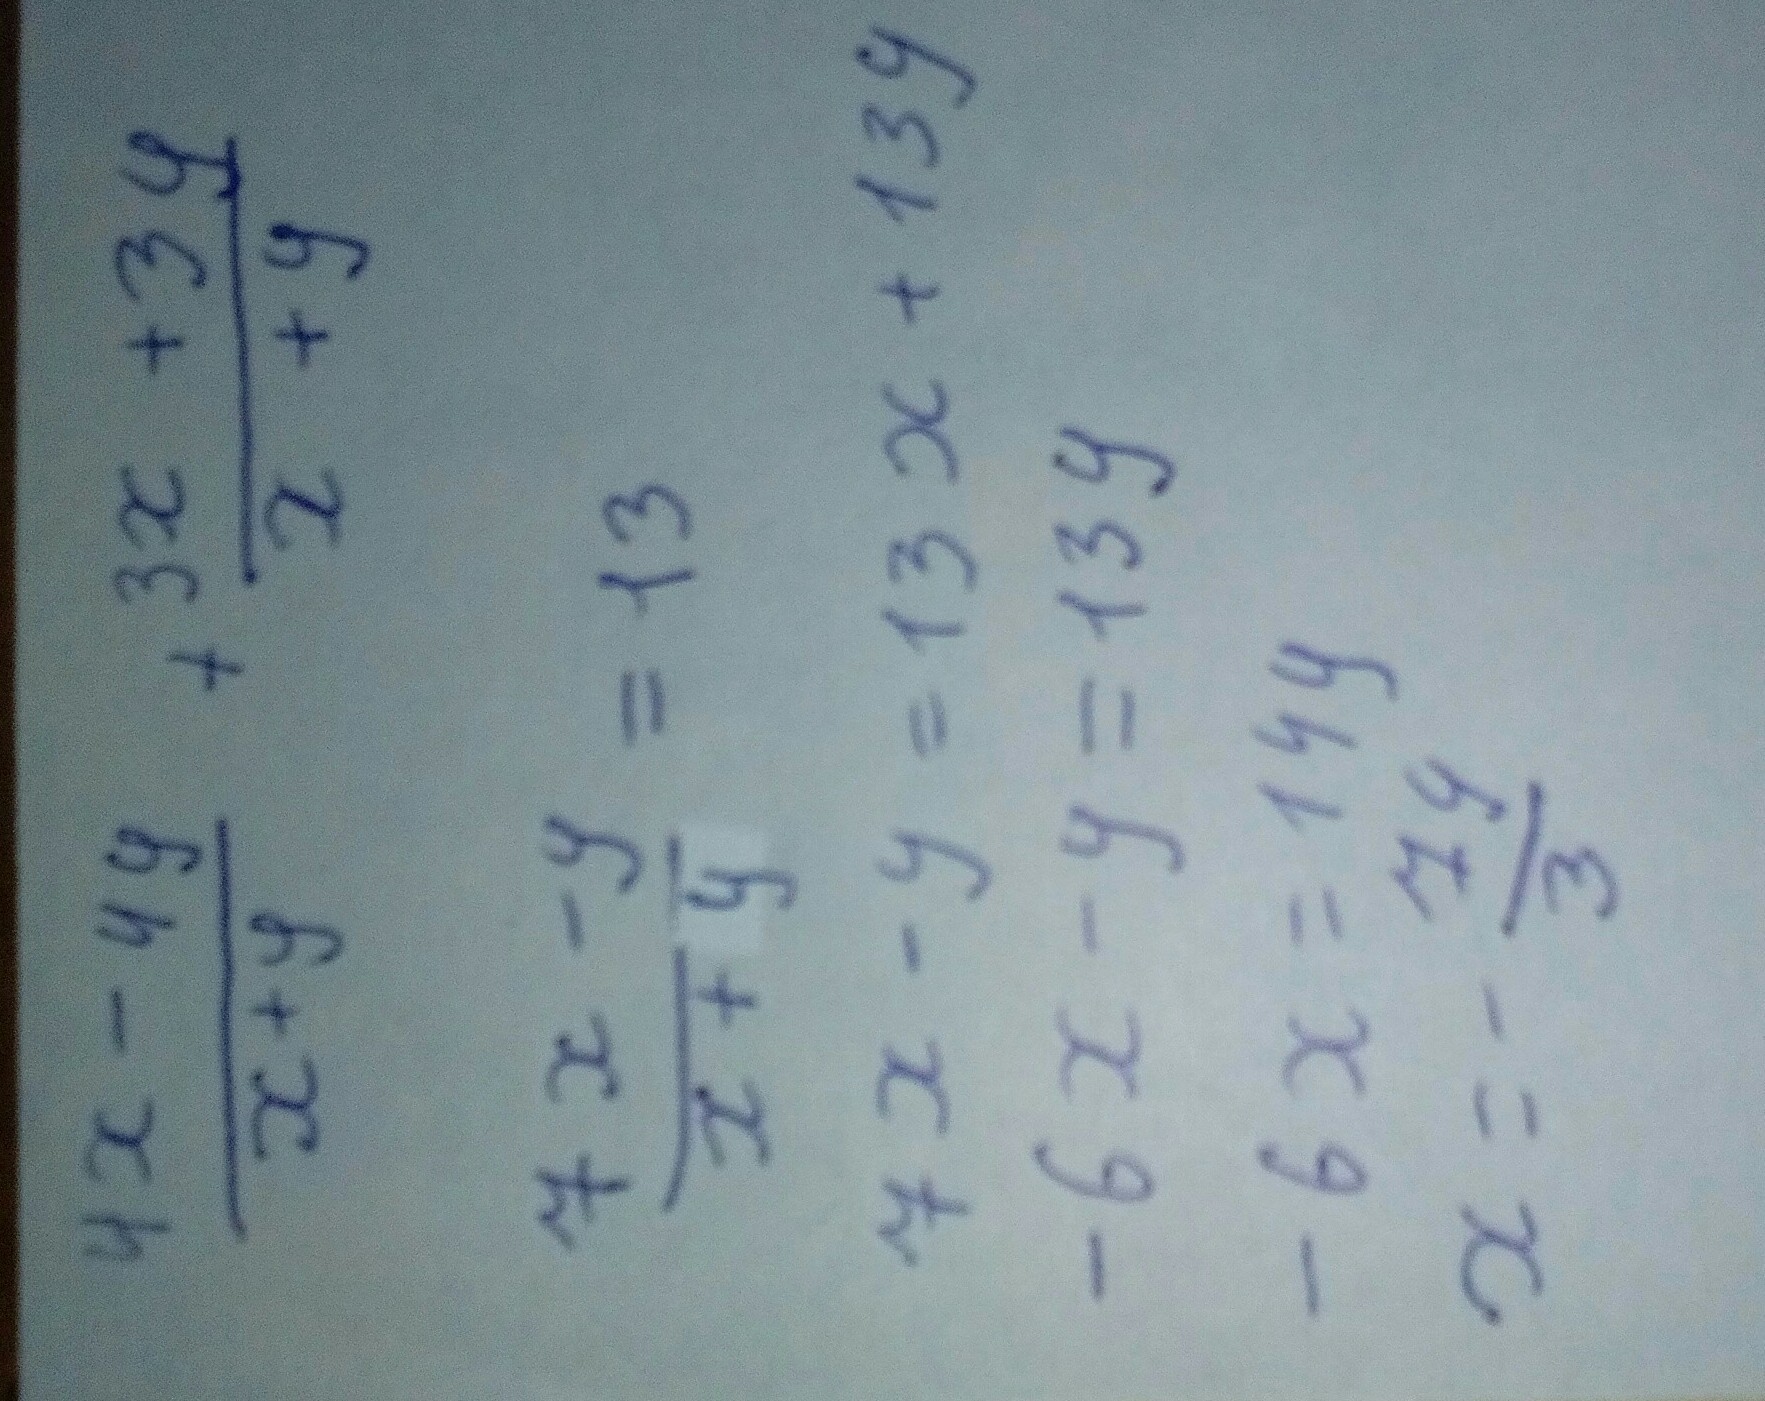 4x - 4y / x + y + 3x + 3y / x + y
7x - y / x + y = 13
7x - y = 13x + 13y
-6x - y = 13y
-6x = 14y
x = - 7y / 3